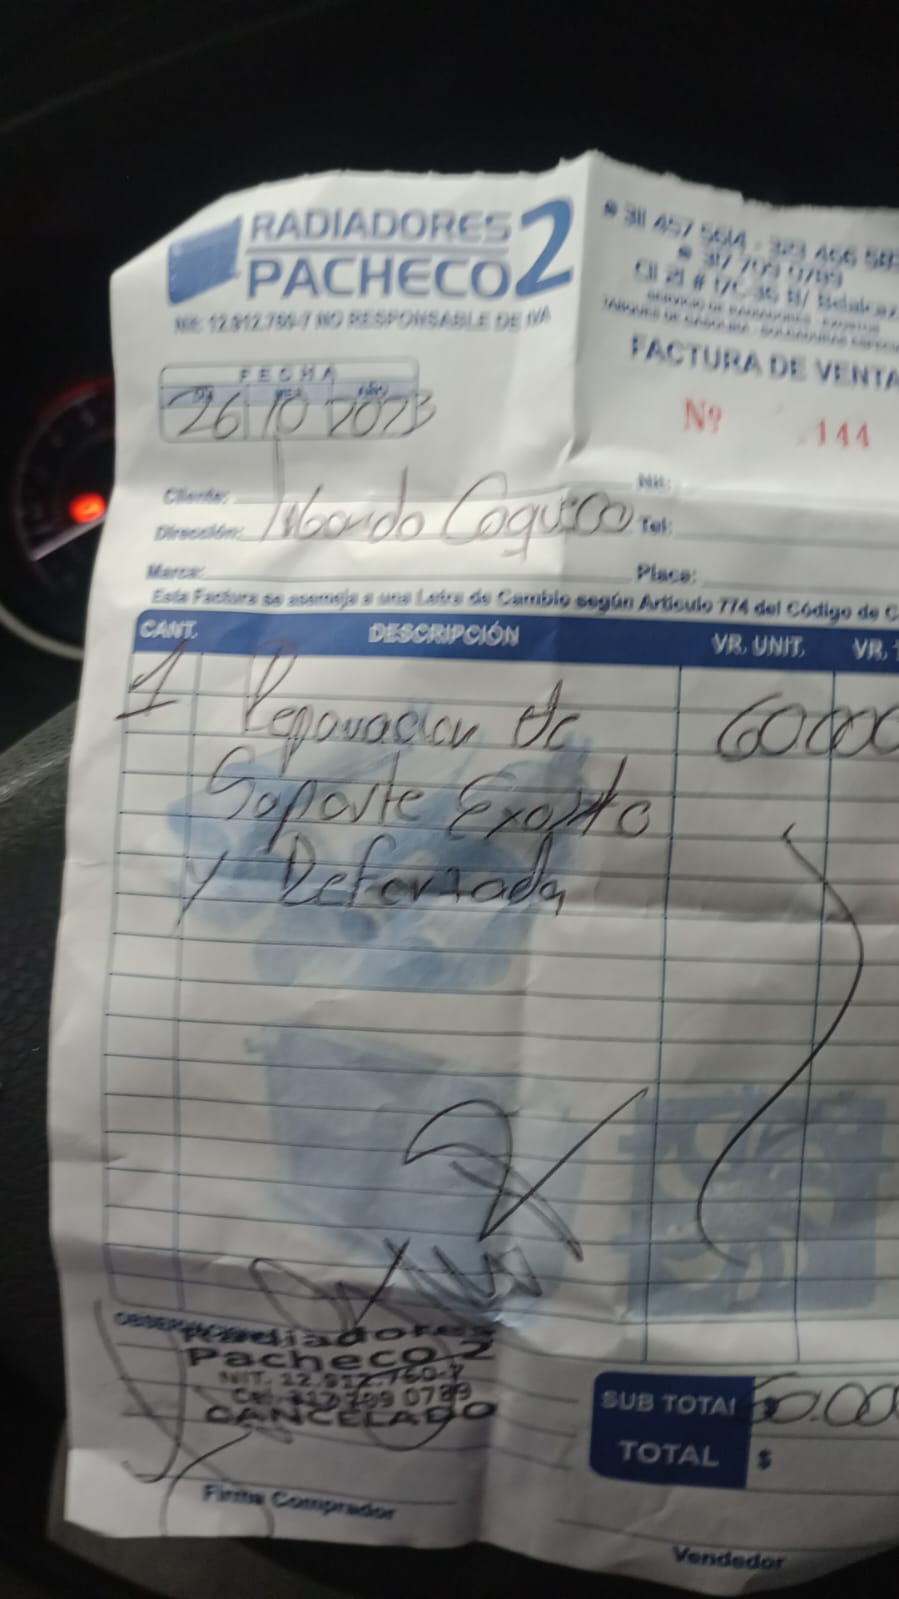 RADIADORES
PACHECO 2
Nit: 12.912.760-7 NO RESPONSABLE DE IVA
311 457 5614 - 323 466 58
317 799 0789
Cll 21 # 17C-36 B/ Belalcaz
SERVICIO DE RADIADORES - EXOSTOS
TANQUES DE GASOLINA - SOLDADURAS ESPECIA
FACTURA DE VENTA
Nº 144
FECHA
DIA MES AÑO
26 10 2023
Cliente:
Nit:
Dirección:
Tel:
Marca:
Placa:
Esta Factura se asemeja a una Letra de Cambio según Artículo 774 del Código de C
CANT. DESCRIPCIÓN VR. UNIT. VR. T
1 Reparacion de 60000
Soporte Exosto
y Reforzada
OBSERVACI
Radiadores
Pacheco 2
NIT. 12.912.760-7
Cel. 317 799 0789
CANCELADO
SUB TOTAL 60.000
TOTAL $
Firma Comprador
Vendedor